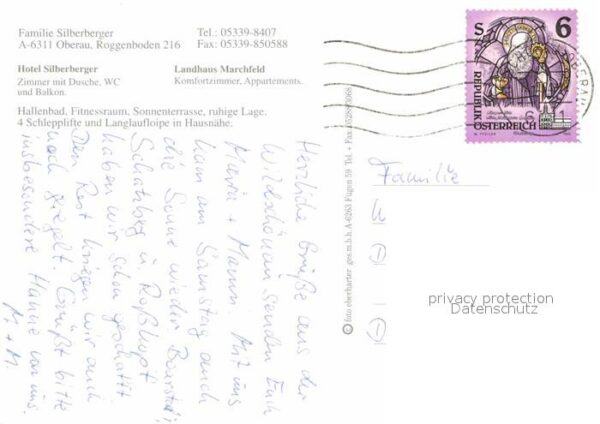 Familie Silberberger
A-6311 Oberau, Roggenboden 216
Tel.: 05339-8407
Fax: 05339-850588
Hotel Silberberger
Zimmer mit Dusche, WC
und Balkon.
Landhaus Marchfeld
Komfortzimmer, Appartements.
Hallenbad, Fitnessraum, Sonnenterrasse, ruhige Lage.
4 Schlepplifte und Langlaufloipe in Hausnähe.
Herzliche Grüße aus der
Wildschönau senden Euch
Maria + Mann. Mit uns
kam am Samstag auch
die Sonne wieder
Schatzberg u. Roßkopf
haben wir schon geschafft
Den Rest kriegen wir auch
noch geregelt. Grüßt bitte
insbesondere Hanne von uns.
M. + M.
© foto eberharter ges.m.b.h. A-6263 Fügen 59 Tel. + Fax
S 6
REPUBLIK
ÖSTERREICH
Familie
privacy protection
Datenschutz